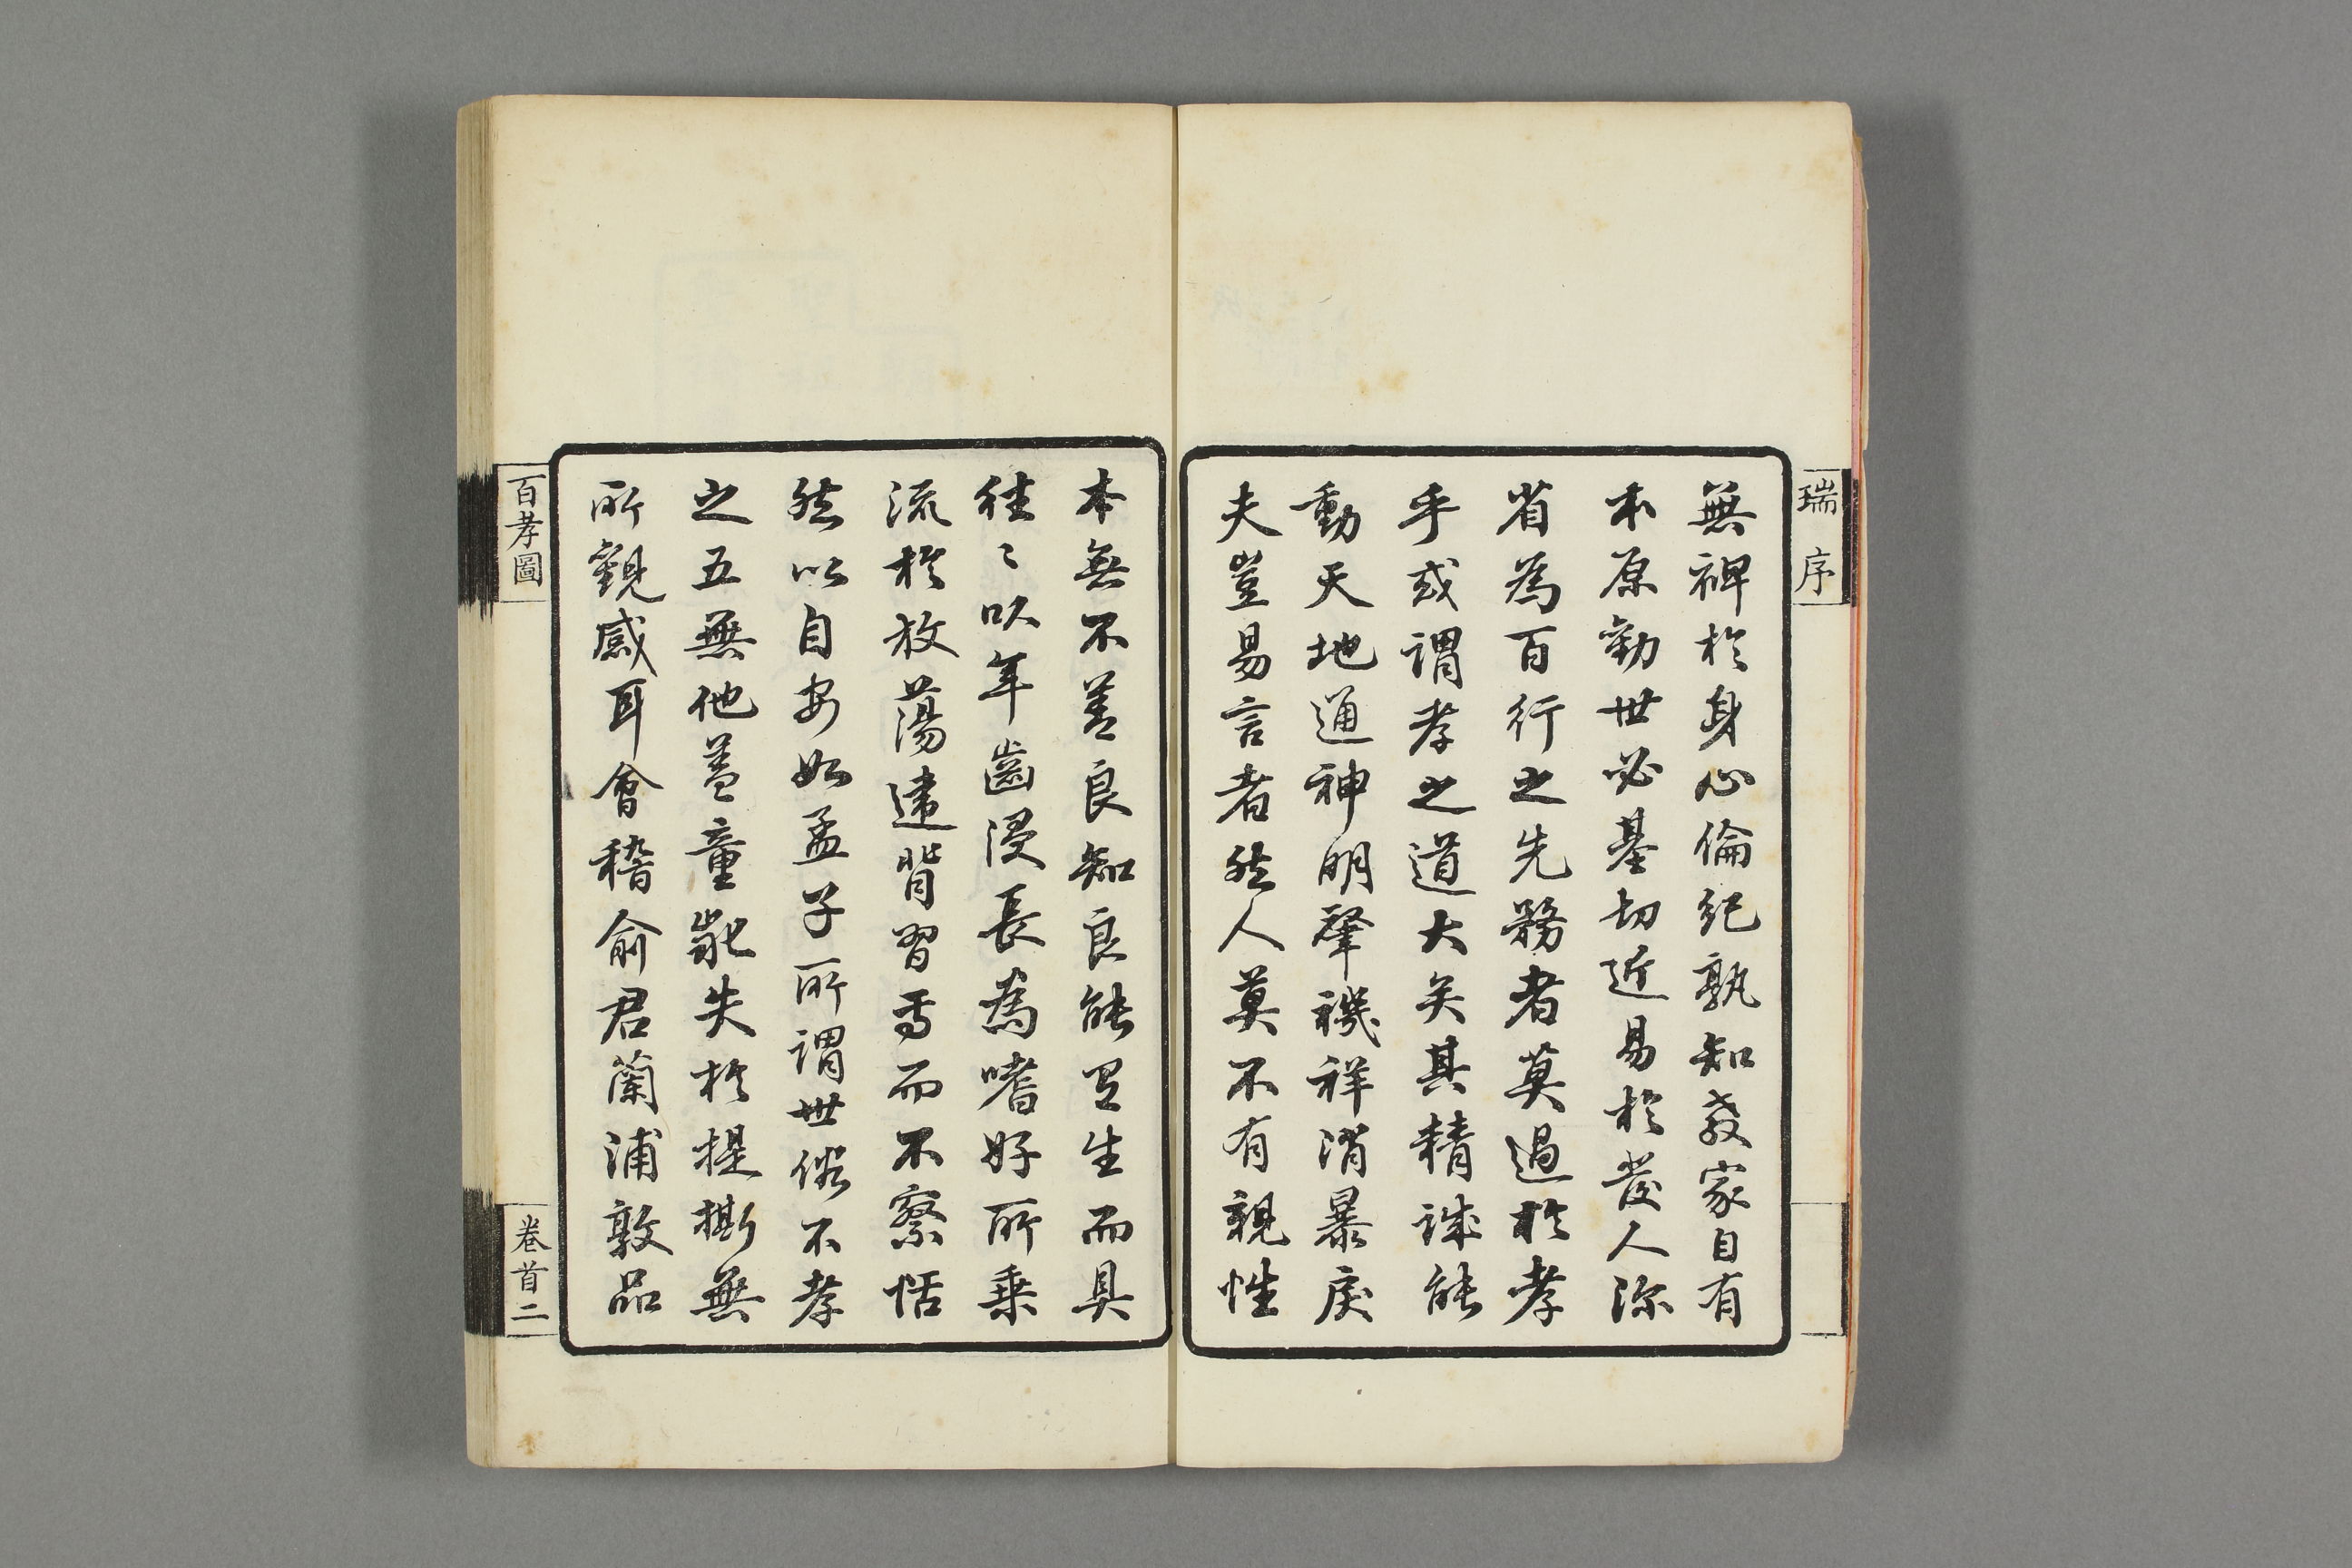 瑞序
無裨於身心倫紀孰知教家自有
本原勸世必基切近易於發人深
省為百行之先務者莫過於孝
乎或謂孝之道大矣其精誠能
動天地通神明肇禨祥消暴戾
夫豈易言者然人莫不有親性
本無不善良知良能具生而具
往〻以年齒浸長為嗜好所乘
流於放蕩違背習焉而不察恬
然以自安如孟子所謂世俗不孝
之五無他蓋童蒙失於提撕無
所觀感耳會稽俞君蘭浦敦品
百孝圖
卷首二